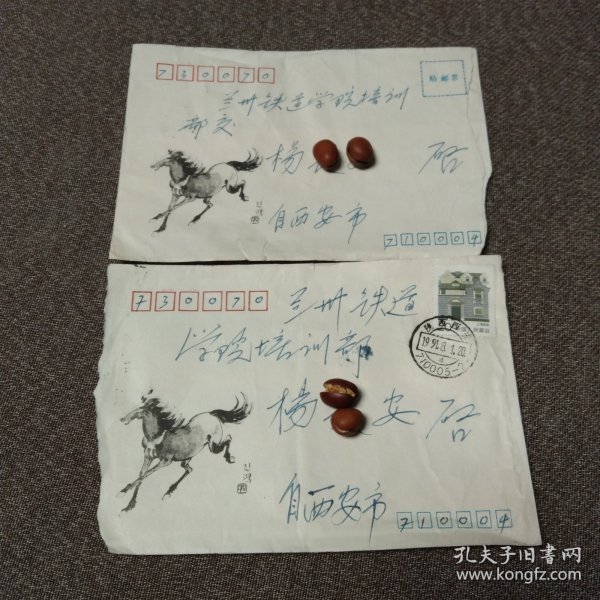 730070
贴邮票
兰州铁道学院培训
部交
杨
启
悲鸿
自西安市
710004
730070
兰州铁道
学院培训部
杨 安 启
悲鸿
自西安市
710004
孔夫子旧书网
www.kongfz.com